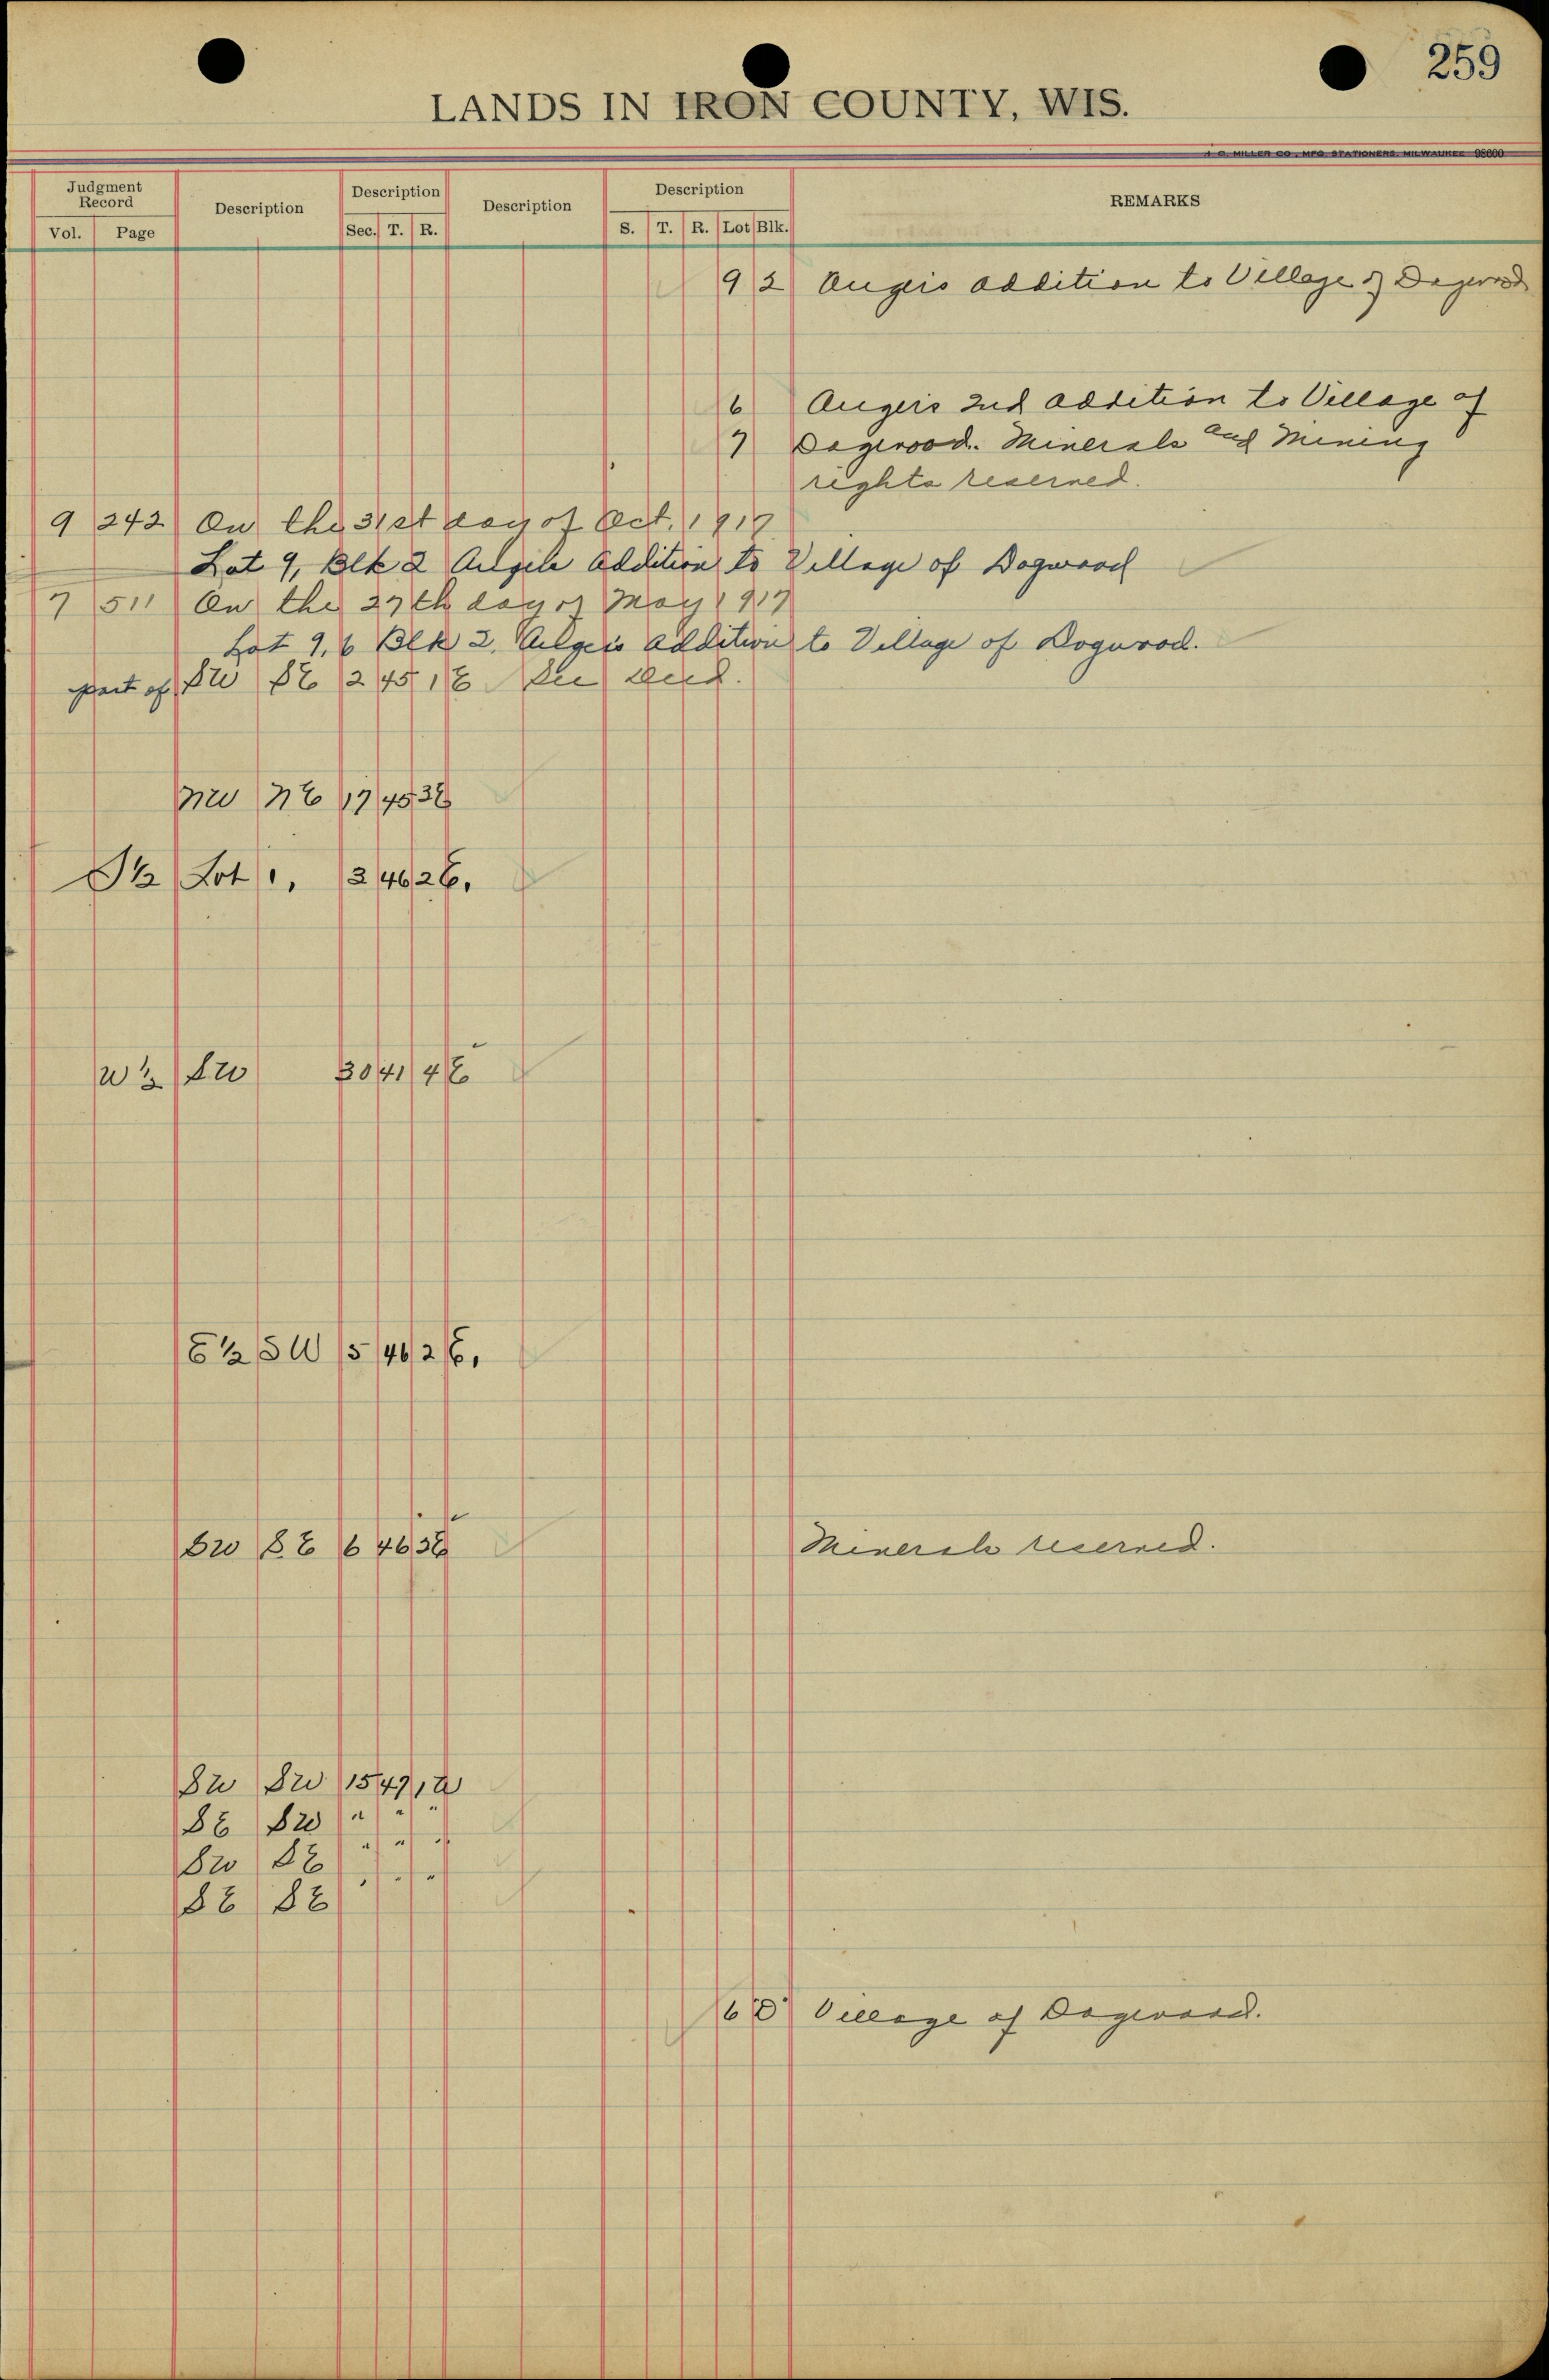 259
LANDS IN IRON COUNTY, WIS.
H. G. MILLER CO., MFG. STATIONERS, MILWAUKEE 98600
Judgment Record Description Description Description Description REMARKS
Vol. Page Sec. T. R. S. T. R. Lot Blk.
9 2 addition to Village of Dogwood
6 2nd addition to Village of
7 Dogwood. Minerals and Mining
rights reserved.
9 242 On the 31st day of Oct. 1917
Lot 9, Blk 2 addition to Village of Dogwood
7 511 On the 27th day of May 1917
Lot 9, 6 Blk 2, addition to Village of Dogwood.
part of SW SE 2 45 1 E See Deed.
NW NE 17 45 3E
S½ Lot 1, 3 46 2 E.
W½ SW 30 41 4 E
E½ SW 5 46 2 E.
SW SE 6 46 3E
Minerals reserved.
SW SW 15 47 1 W
SE SW " " "
SW SE " " "
SE SE " " "
6 D Village of Dogwood.